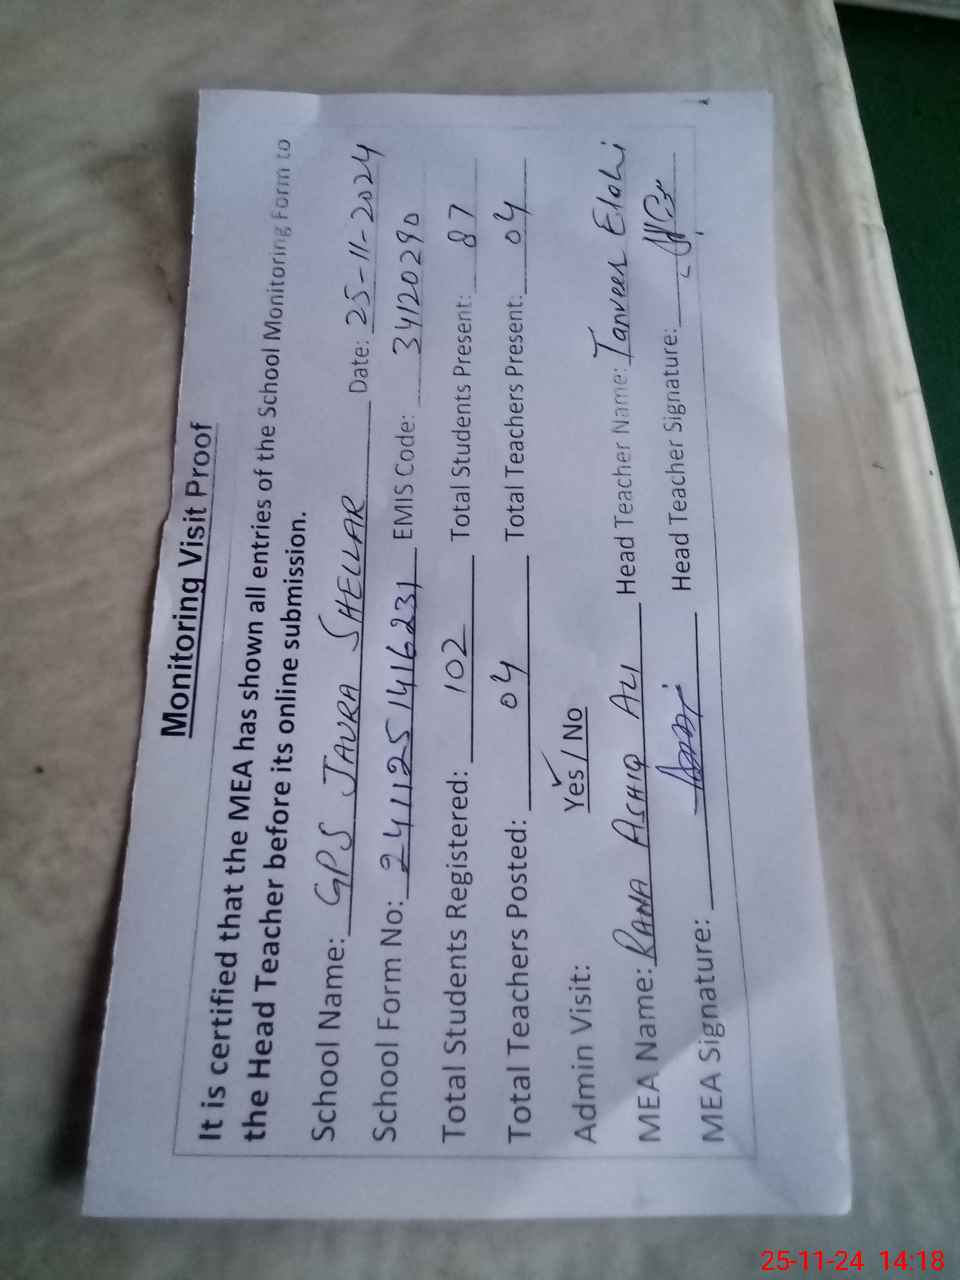 Monitoring Visit Proof
It is certified that the MEA has shown all entries of the School Monitoring Form to
the Head Teacher before its online submission.
School Name: GPS JAURA SHELLAR Date: 25-11-2024
School Form No: 2411251416231 EMIS Code: 34120290
Total Students Registered: 102 Total Students Present: 87
Total Teachers Posted: 04 Total Teachers Present: 04
Admin Visit: Yes / No
MEA Name: RANA ASHIQ ALI Head Teacher Name: Tanveer Elahi
MEA Signature: Head Teacher Signature:
25-11-24 14:18